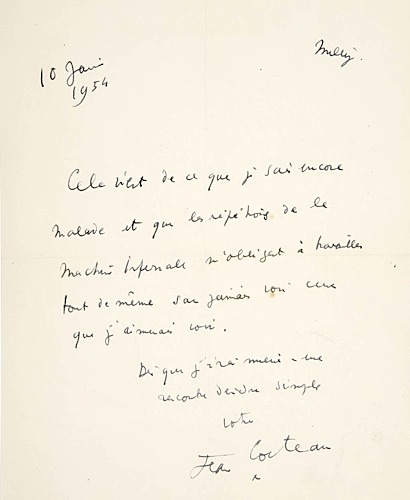 Milly
10 Juin
1954
Cela vient de ce que je suis encore
malade et que les répétitions de la
Machine Infernale m'obligent à travailler
tout de même sans jamais voir ceux
que j'aimerais voir.
Dès que j'irai mieux - une
rencontre deviendra simple
votre
Jean Cocteau